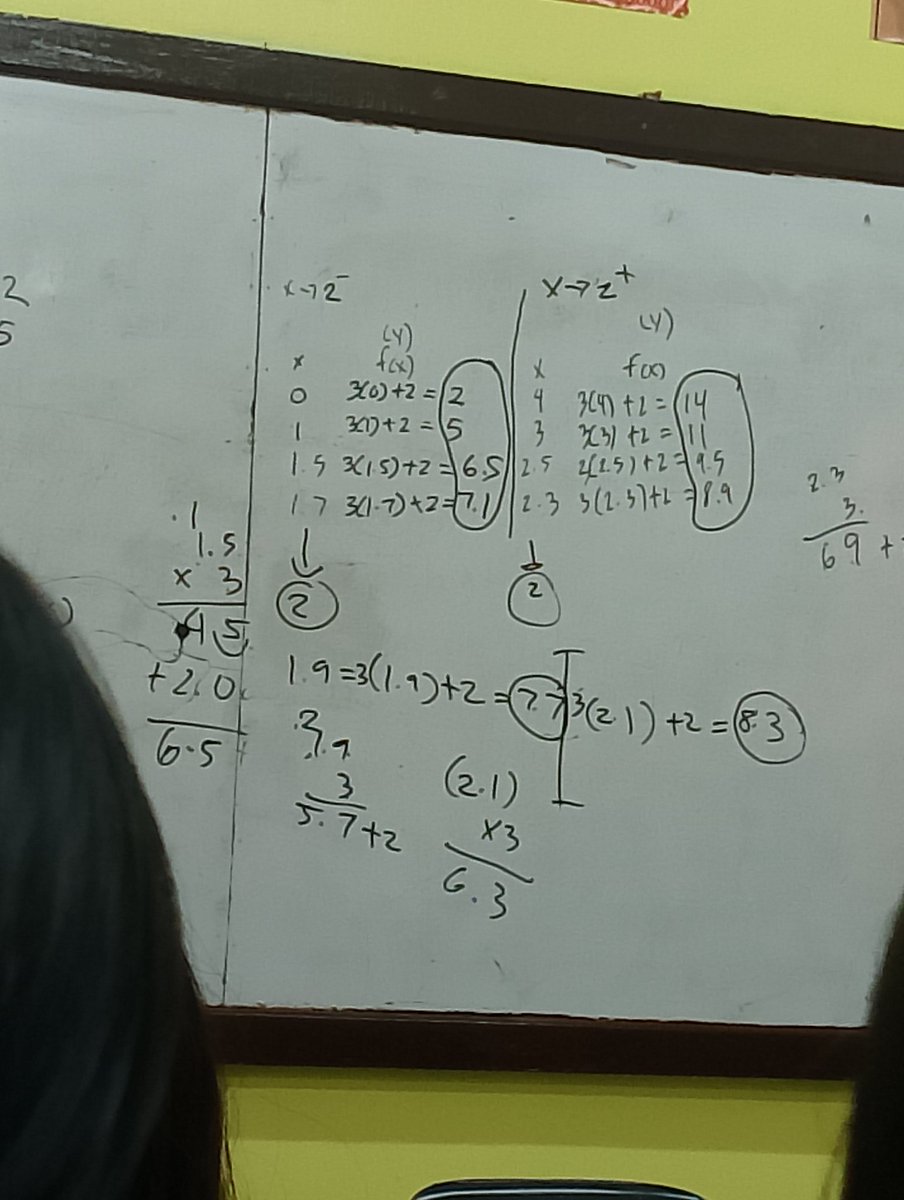 2
5
x→2⁻
(y)
x f(x)
0 3(0)+2 = 2
1 3(1)+2 = 5
1.5 3(1.5)+2 = 6.5
1.7 3(1.7)+2 = 7.1
↓
2
x→2⁺
(y)
x f(x)
4 3(4)+2 = 14
3 3(3)+2 = 11
2.5 2(2.5)+2 = 9.5
2.3 3(2.3)+2 = 8.9
↓
2
.1
1.5
x 3
4 5
+2.0
6.5
1.9 = 3(1.9)+2 = 7.7
3(2.1)+2 = 8.3
.9
3
5.7+2
(2.1)
x3
6.3
2.3
3.
69 +